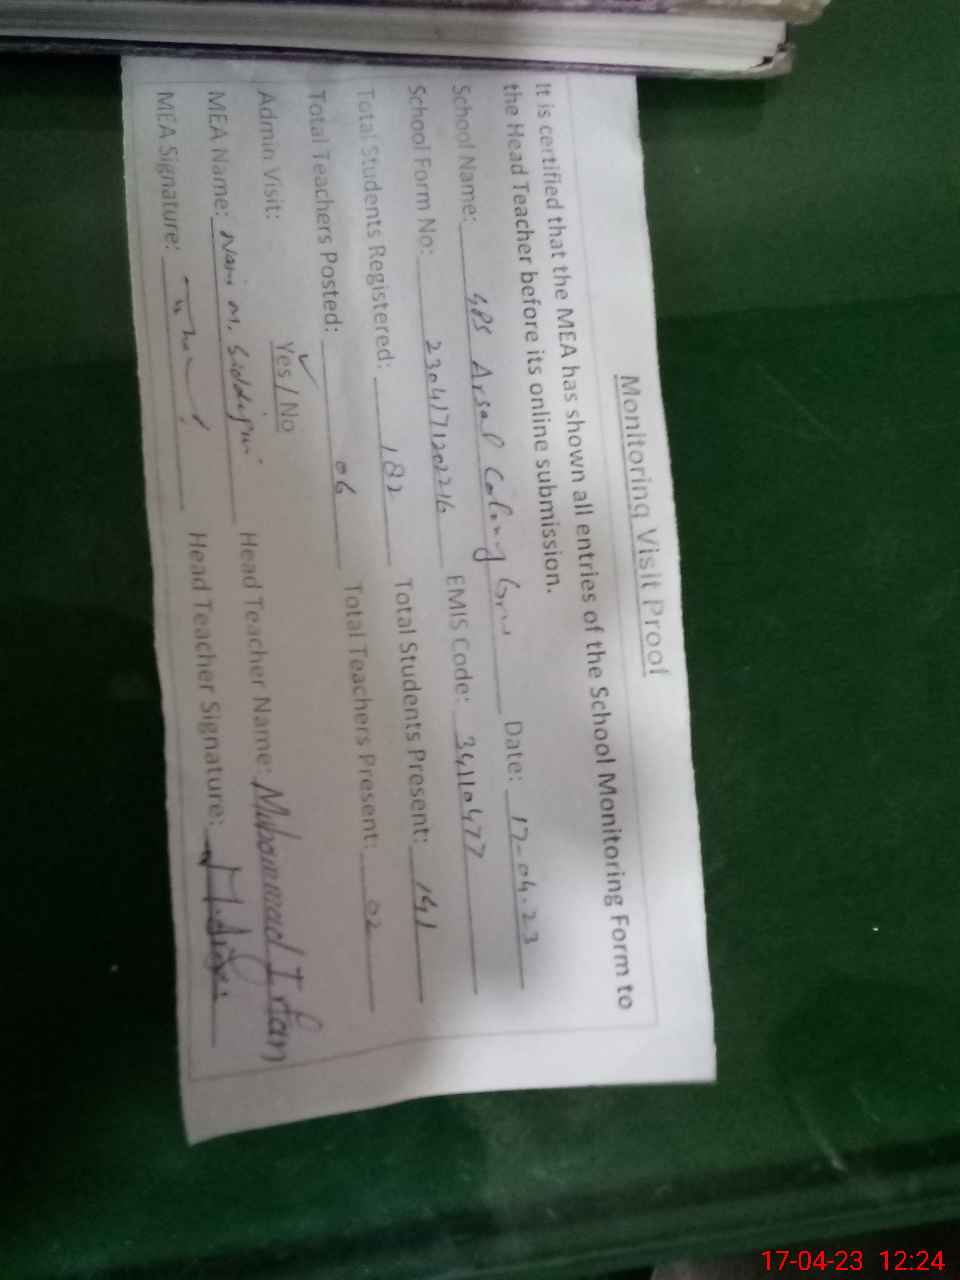 Monitoring Visit Proof
It is certified that the MEA has shown all entries of the School Monitoring Form to
the Head Teacher before its online submission.
School Name: GPS Arsal Colony Date: 17-04-23
School Form No: EMIS Code: 34110477
Total Students Registered: 182 Total Students Present: 141
Total Teachers Posted: 06 Total Teachers Present: 02
Admin Visit: Yes / No
MEA Name: M. Siddiqui Head Teacher Name: Muhammad Irfan
MEA Signature: Head Teacher Signature:
17-04-23 12:24